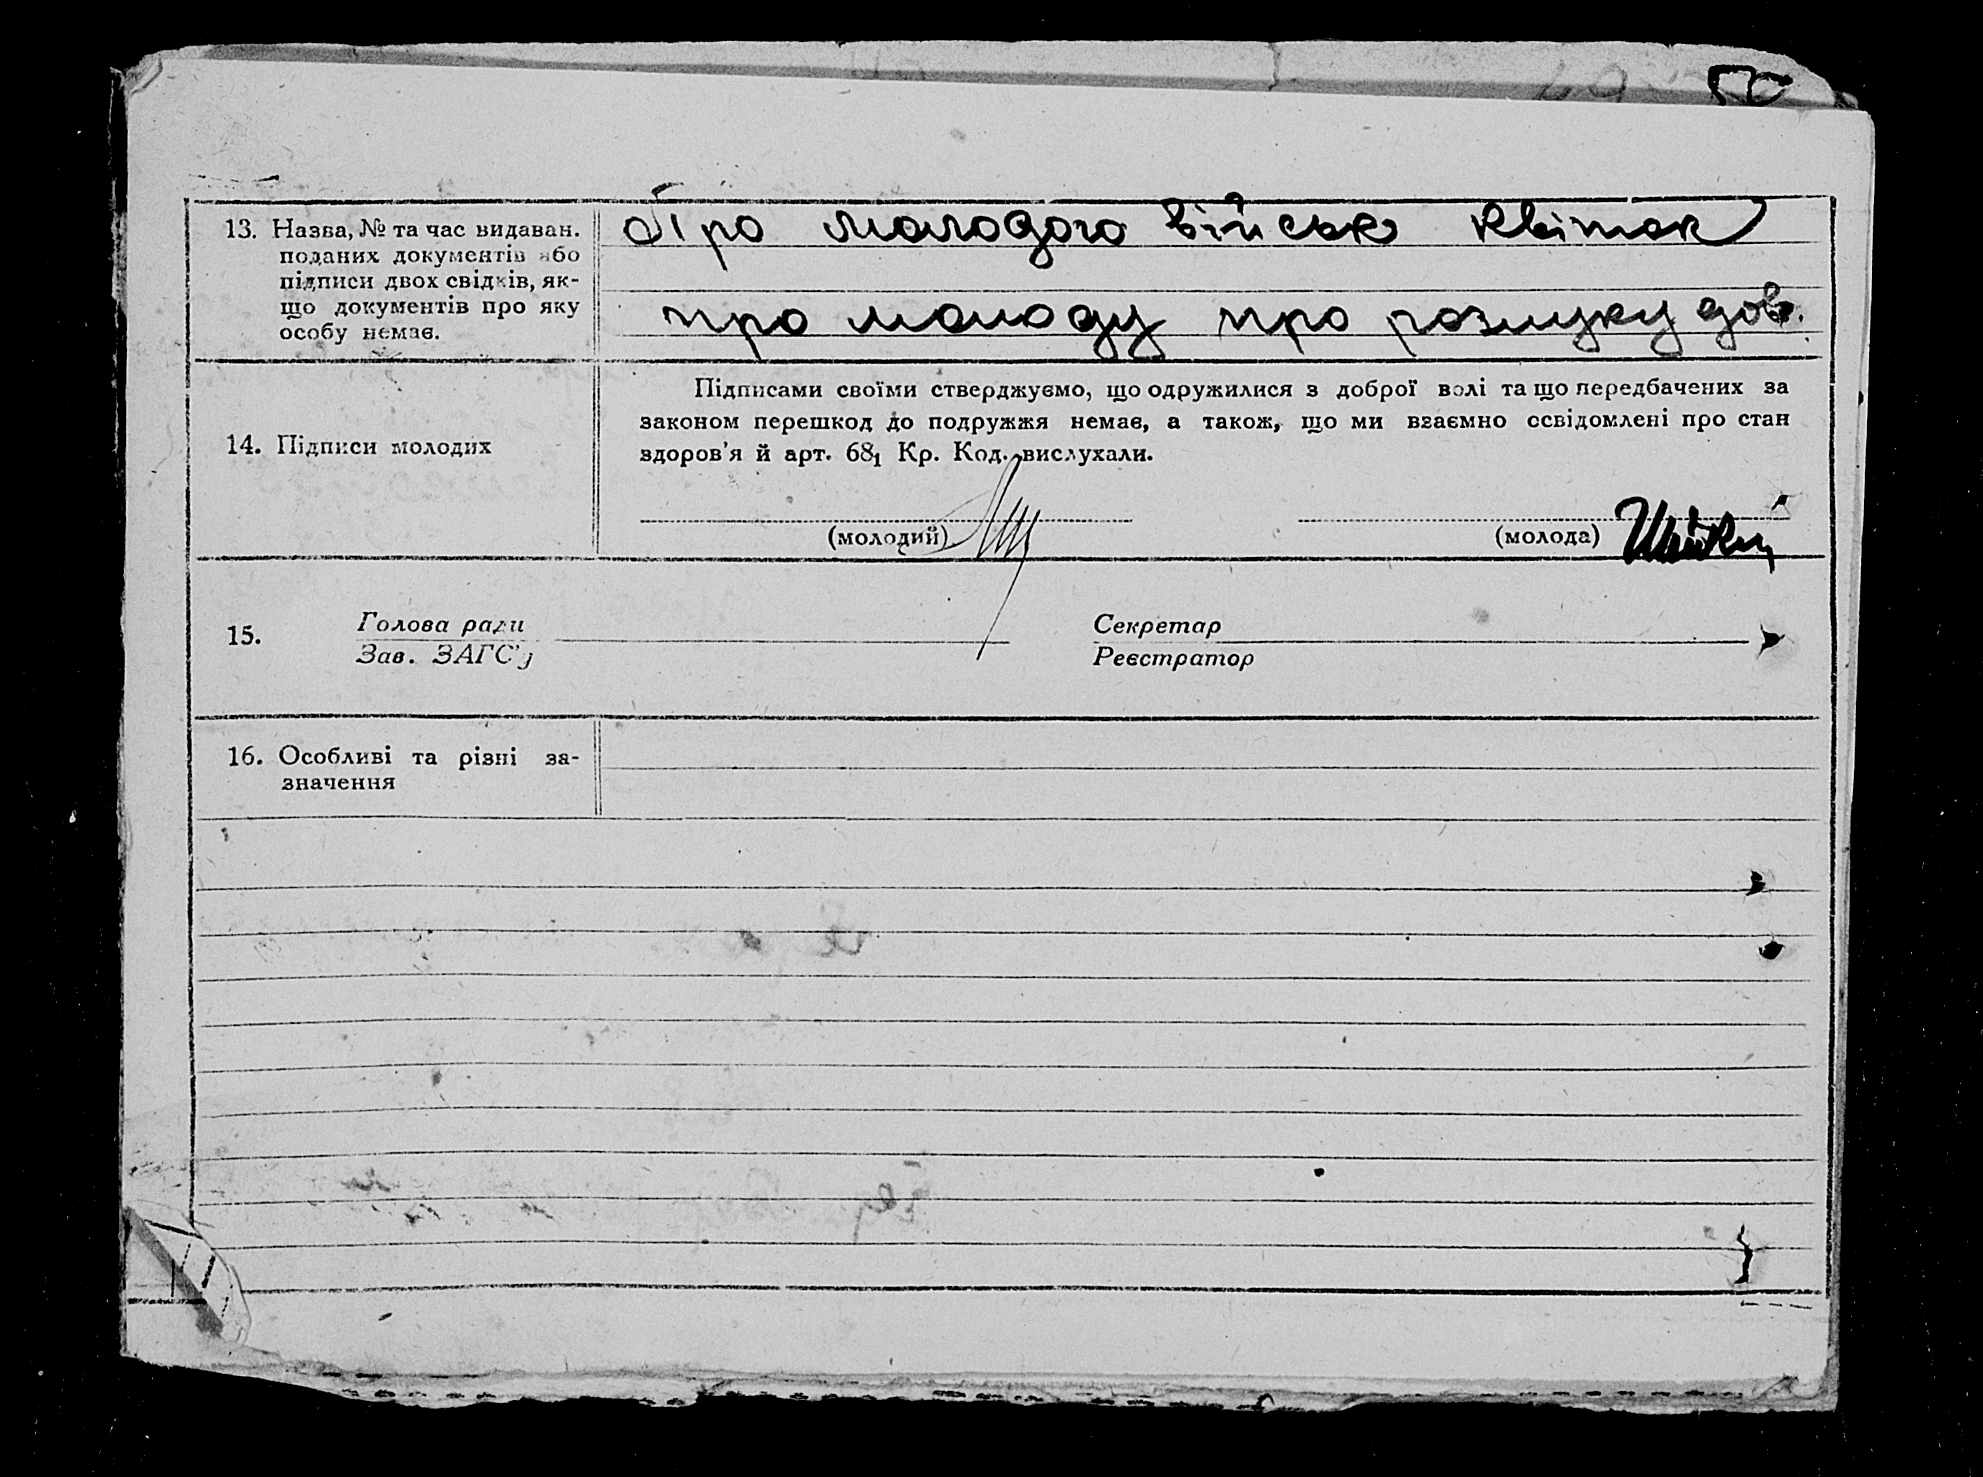 50
13. Назва, № та час видаван.
поданих документів або
підписи двох свідків, як-
що документів про яку
особу немає.
Про молодого військ квіток
про молоду про розлуку дов.
14. Підписи молодих
Підписами своїми стверджуємо, що одружилися з доброї волі та що передбачених за
законом перешкод до подружжя немає, а також, що ми взаємно освідомлені про стан
здоров'я й арт. 68₁ Кр. Код. вислухали.
(молодий)
(молода)
15.
Голова ради
Зав. ЗАГС'у
Секретар
Реєстратор
16. Особливі та різні за-
значення